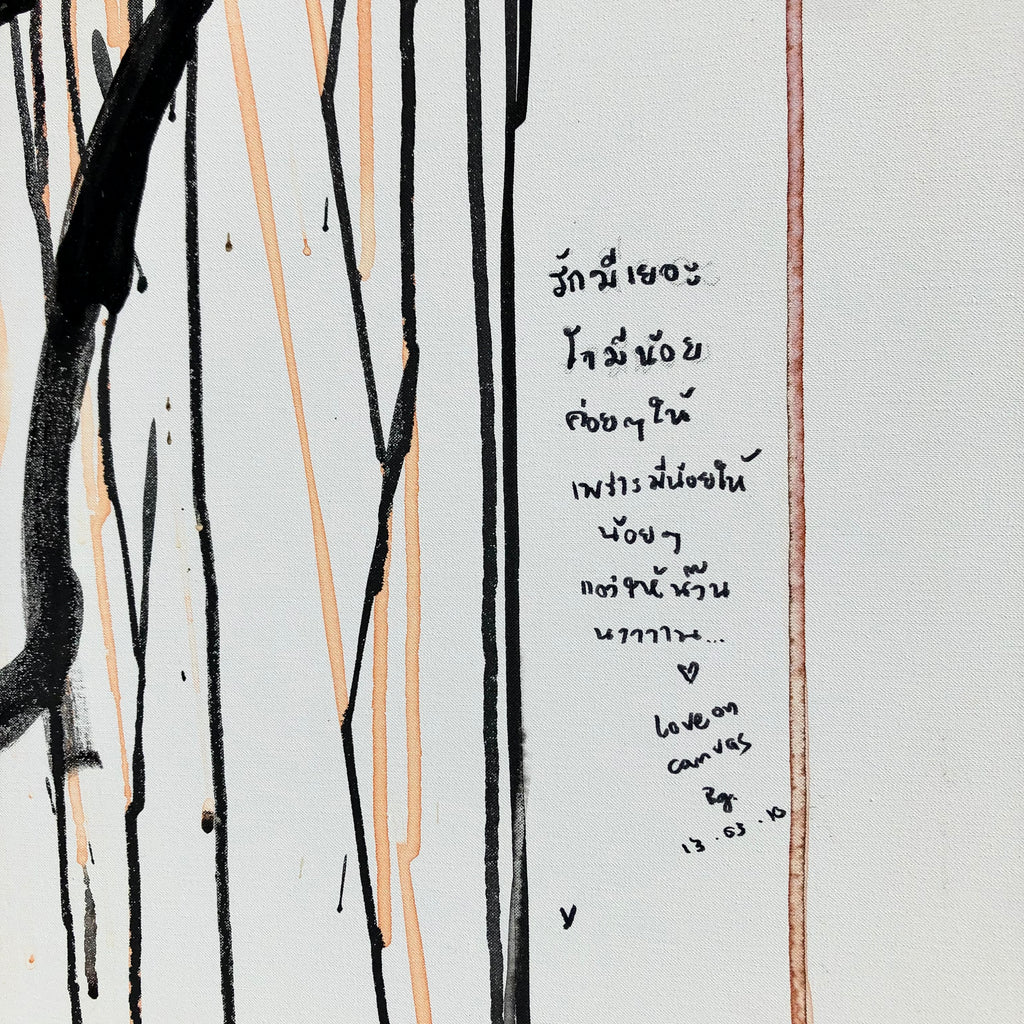 รักมีเยอะ
ใจมีน้อย
ค่อยๆให้
เพราะมีน้อยให้
น้อยๆ
แต่ให้น๊าน
นาาาาน...
♡
Love on
canvas
13.03.10
y